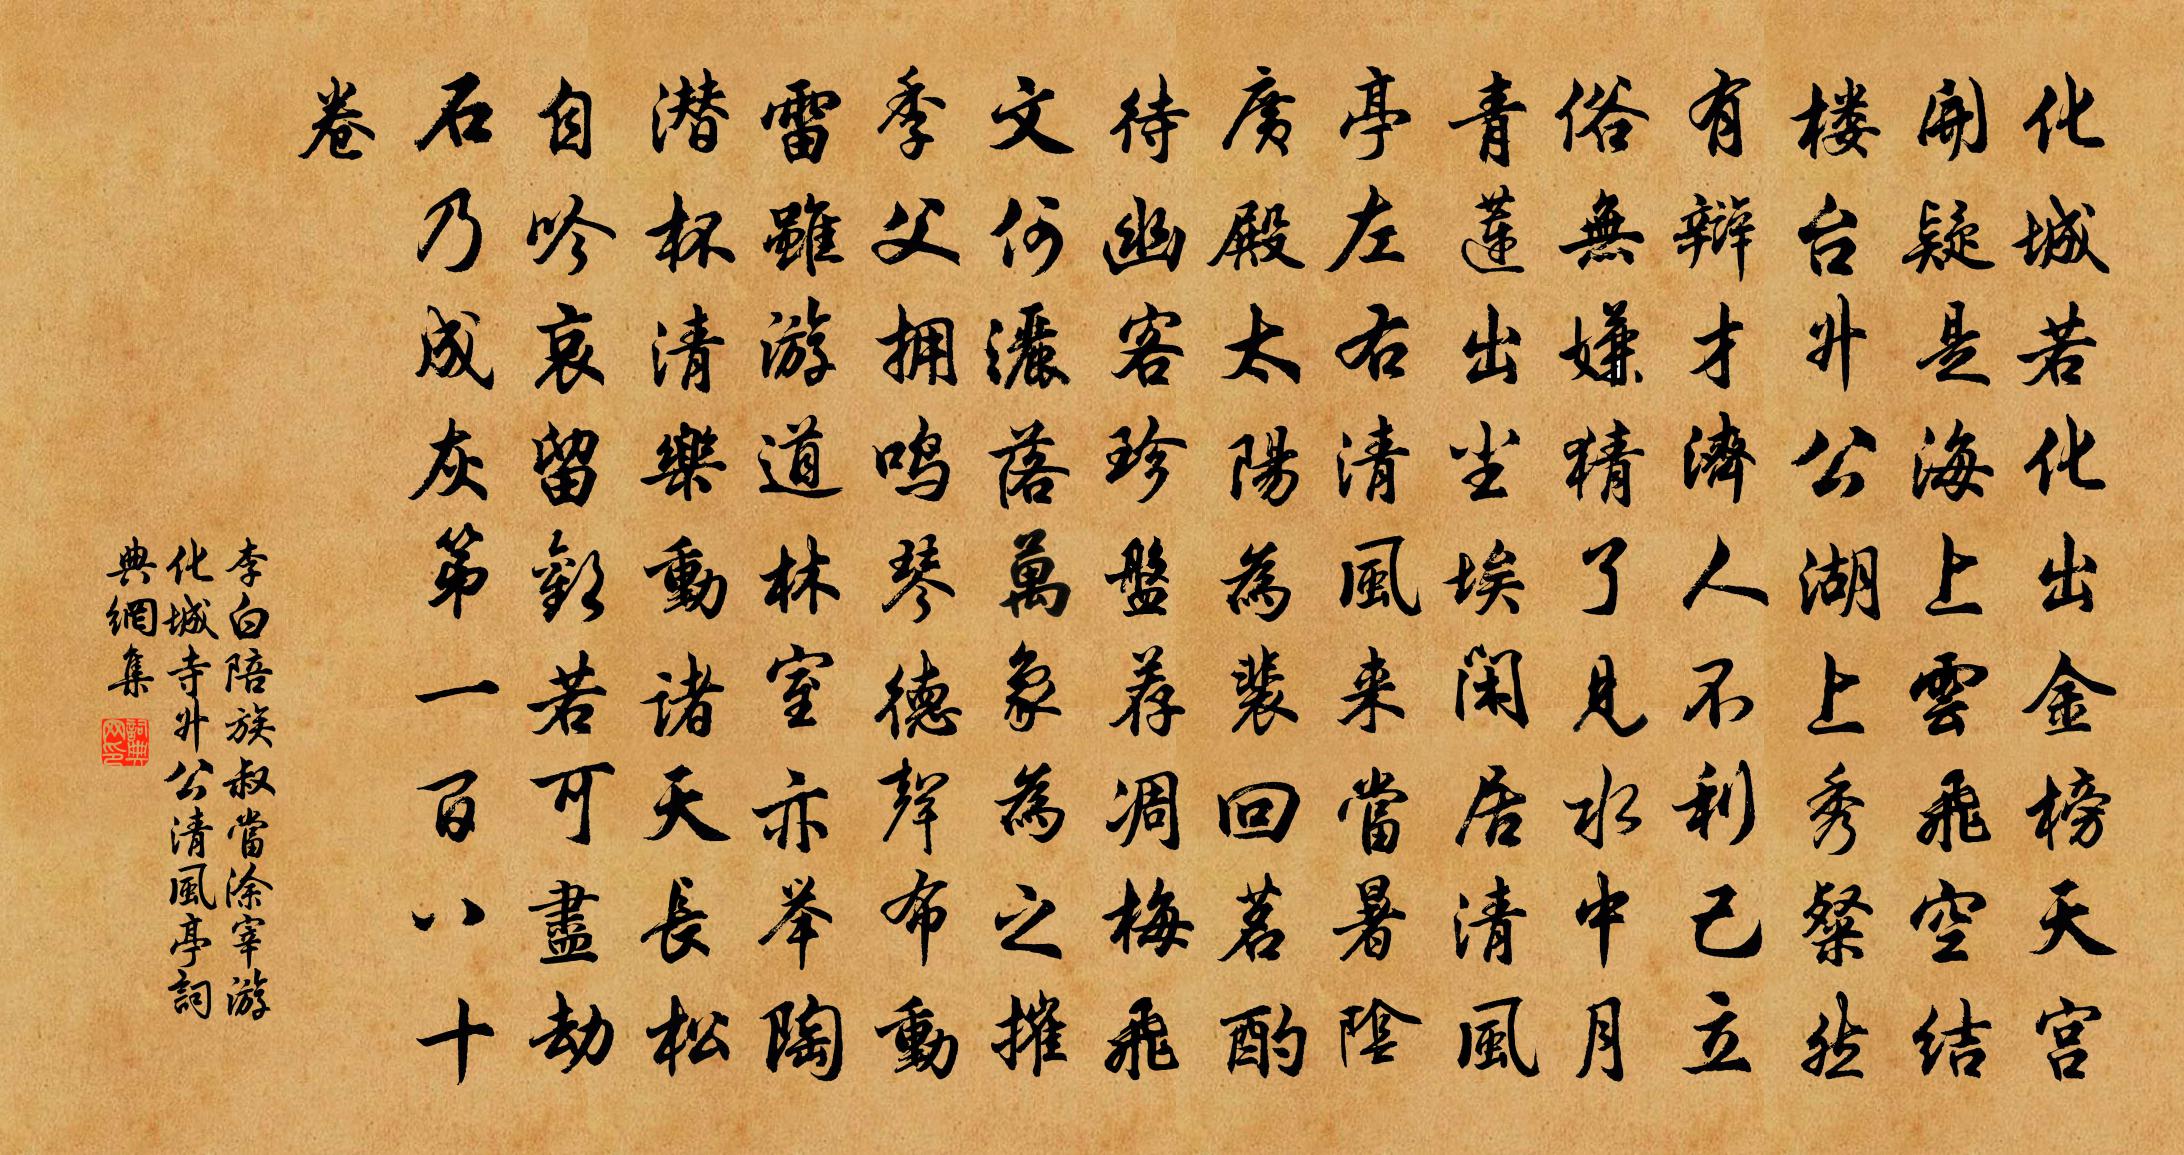 化城若化出金榜天宫
開疑是海上雲飛空結
楼台升公湖上秀粲然
有辯才濟人不利己立
俗無嫌猜了見水中月
青蓮出尘埃闲居清風
亭左右清風来當暑陰
廣殿太陽為裴回茗酌
待幽客珍盤荐凋梅飛
文何灑落萬象為之摧
季父拥鸣琴德聲布動
雷雖游道林室亦举陶
潜杯清樂動諸天長松
自吟哀留歡若可盡劫
石乃成灰第一百八十
卷
李白陪族叔當涂宰游
化城寺升公清風亭詞
典網集
詞典网印